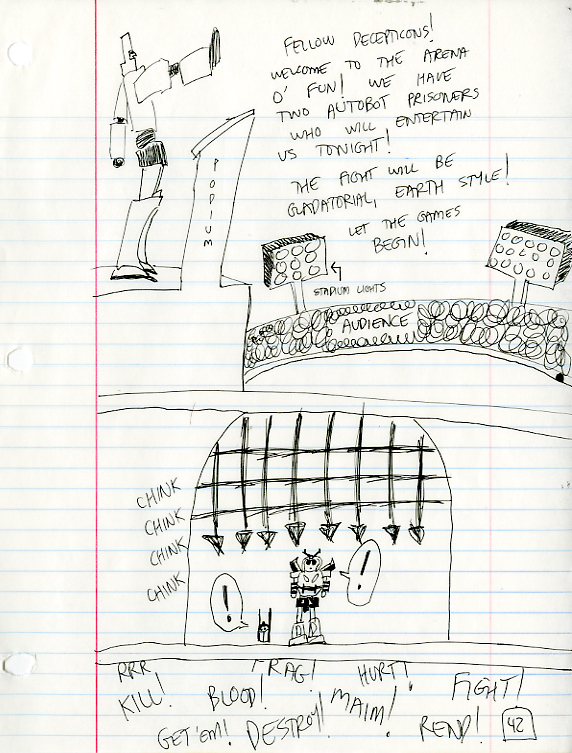 FELLOW DECEPTICONS!
WELCOME TO THE ARENA
O' FUN! WE HAVE
TWO AUTOBOT PRISONERS
WHO WILL ENTERTAIN
US TONIGHT!
THE FIGHT WILL BE
GLADATORIAL, EARTH STYLE!
LET THE GAMES
BEGIN!
PODIUM
STADIUM LIGHTS
AUDIENCE
CHINK
CHINK
CHINK
CHINK
!
!
RRR
FRAG!
HURT!
KILL!
BLOOD!
MAIM!
FIGHT!
GET 'EM!
DESTROY!
REND!
42